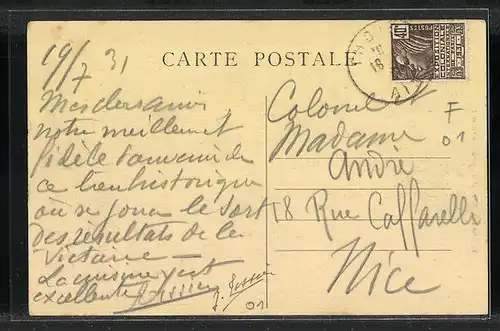 19/7 31
CARTE POSTALE
Mes chers amis
notre meilleur et
fidèle souvenir de
ce lieu historique
où se joua le sort
des résultats de la
Victoire —
La cuisine y est
excellente
Colonel et
Madame
André
18 Rue Caffarelli
Nice
F
01
01
POSTES
EXPOSITION
COLONIALE
INTERNATIONALE
18
AI